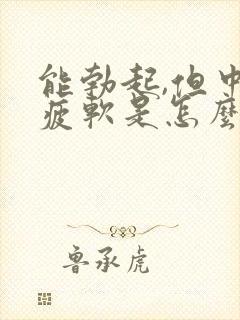 能勃起,但中
疲軟是怎麼
魯承虎